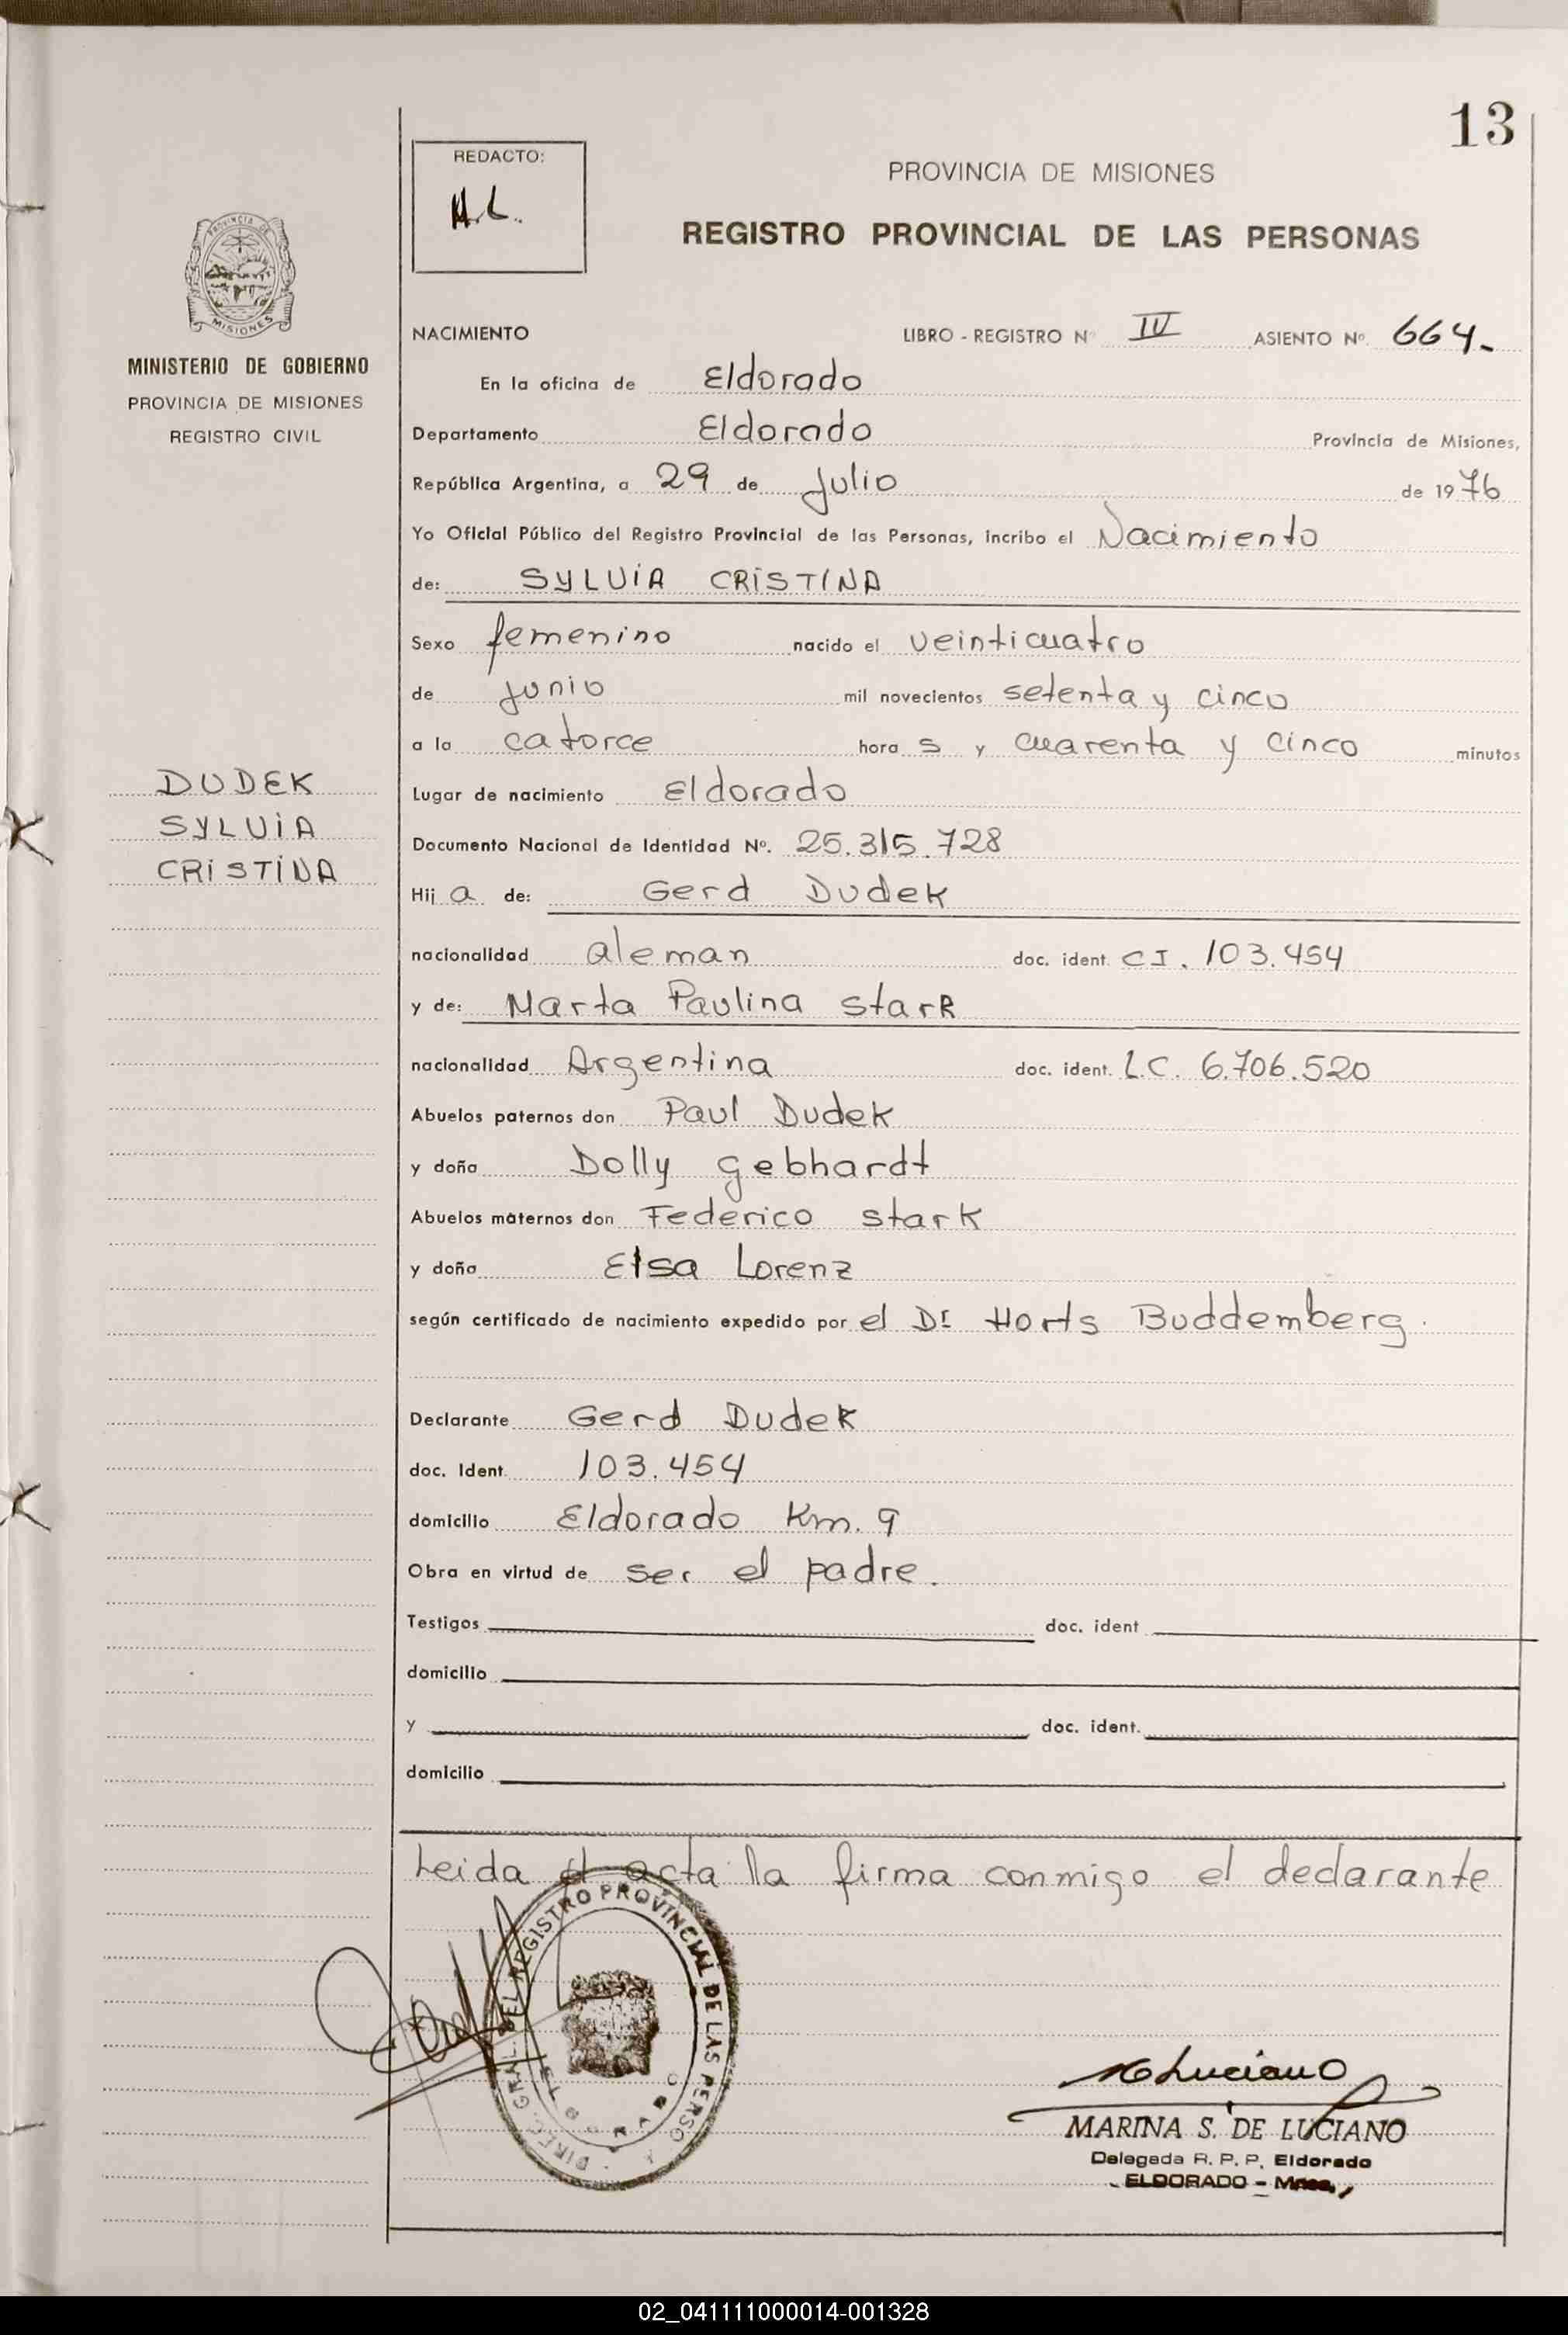 13
REDACTO:
H.L.
PROVINCIA DE MISIONES
REGISTRO PROVINCIAL DE LAS PERSONAS
PROVINCIA DE
MISIONES
MINISTERIO DE GOBIERNO
PROVINCIA DE MISIONES
REGISTRO CIVIL
NACIMIENTO LIBRO - REGISTRO Nº IV ASIENTO Nº 664.
En la oficina de Eldorado
Departamento Eldorado Provincia de Misiones,
República Argentina, a 29 de Julio de 1976
Yo Oficial Público del Registro Provincial de las Personas, incribo el Nacimiento
de: SYLVIA CRISTINA
Sexo femenino nacido el veinticuatro
de junio mil novecientos setenta y cinco
a la catorce hora s y cuarenta y cinco minutos
DUDEK
SYLVIA
CRISTINA
Lugar de nacimiento Eldorado
Documento Nacional de Identidad Nº. 25.315.728
Hij a de: Gerd Dudek
nacionalidad aleman doc. ident. CI. 103.454
y de: Marta Paulina Stark
nacionalidad Argentina doc. ident. L.C. 6.706.520
Abuelos paternos don Paul Dudek
y doña Dolly Gebhardt
Abuelos maternos don Federico Stark
y doña Elsa Lorenz
según certificado de nacimiento expedido por el Dr Horts Buddemberg.
Declarante Gerd Dudek
doc. Ident. 103.454
domicilio Eldorado Km. 9
Obra en virtud de ser el padre.
Testigos doc. ident
domicilio
y doc. ident.
domicilio
Leida el acta la firma conmigo el declarante
DIREC. GRAL. DEL REGISTRO PROVINCIAL DE LAS PERSO
M Luciano
MARINA S. DE LUCIANO
Delegada R. P. P. Eldorado
ELDORADO - Mnes.
02_041111000014-001328